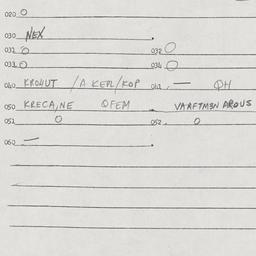 020 O
030 NEX
031 O 032 O
033 O 034 O
040 KROHUT / A KEPL/KOP 041 — QH
050 KRECA,NE OFEM
051 O 052 O
060 —